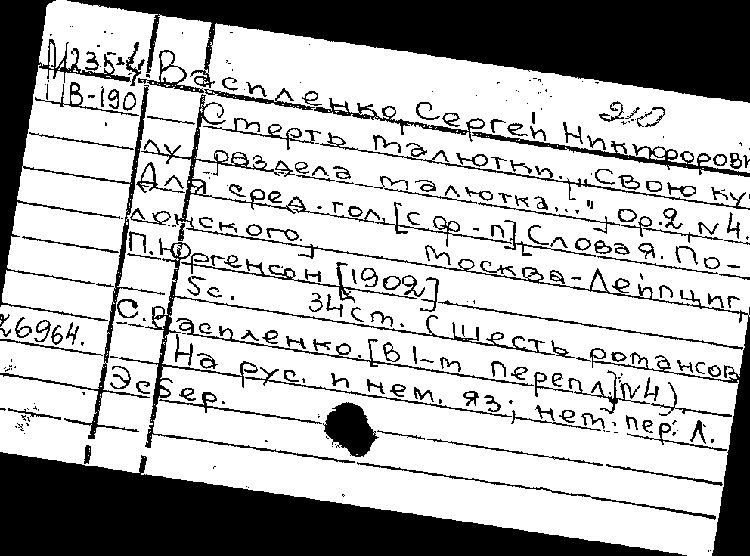 М235-4
В-190
210
Василенко, Сергей Никифорови
Смерть малютки. „Свою ку-
лу раздела малютка...", Ор.2, N4.
Для сред. гол. [с ф-п], Слова Я. По-
лонского. Москва-Лейпциг,
П. Юргенсон [1902].
5с. 34см. (Шесть романсов
С. Василенко. [В 1-м перепл.] N4).
26964.
На рус. и нем. яз; нем. пер. Л.
Эсбер.